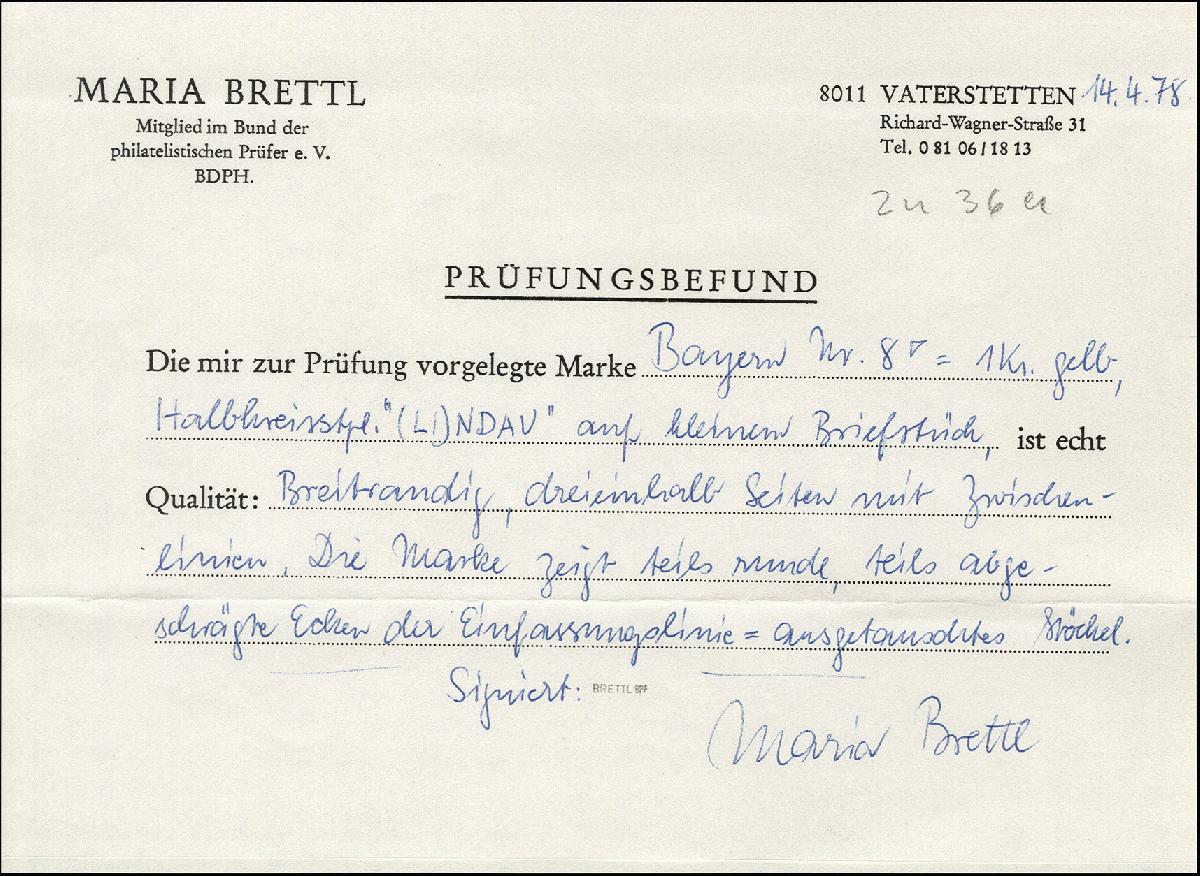 MARIA BRETTL
Mitglied im Bund der
philatelistischen Prüfer e. V.
BDPH.
8011 VATERSTETTEN 14.4.78
Richard-Wagner-Straße 31
Tel. 0 81 06 / 18 13
zu 36 a
PRÜFUNGSBEFUND
Die mir zur Prüfung vorgelegte Marke Bayern Nr. 8 = 1 Kr. gelb,
Halbkreisstpl. "(LI)NDAU" auf kleinem Briefstück, ist echt
Qualität: Breitrandig, dreieinhalb Seiten mit Zwischen-
linien. Die Marke zeigt teils runde, teils abge-
schrägte Ecken der Einfassungslinie = ausgetauschtes Stöckel.
Signiert: BRETTL BPP
Maria Brettl